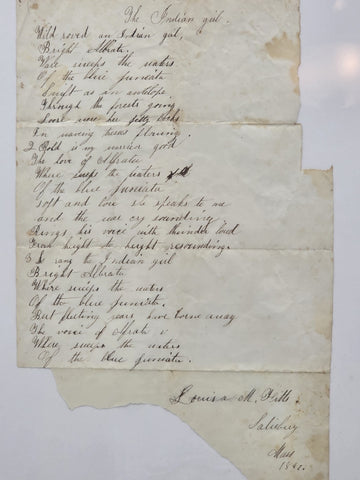 The Indian girl.
Wild roved an Indian girl,
Bright Alfrata,
Where sweeps the waters
Of the blue Juneata
Swift as an antelope
Through the forests going
Loose were her jetty locks
In waveing tresses flowing.
2 Bold is my warrior good
The love of Alfrata
Where sweeps the waters
Of the blue Juneata
Soft and low he speaks to me
and the war cry sounding
Rings his voice with thunder loud
From height to height resounding.
3 So sang the Indian girl
Bright Alfrata
Where sweeps the waters
Of the blue Juneata.
But fleeting years have borne away
The voice of Alfrata
Where sweeps the waters
Of the blue Juneata.
Louisa M. Pitts.
Salisbury
Mass